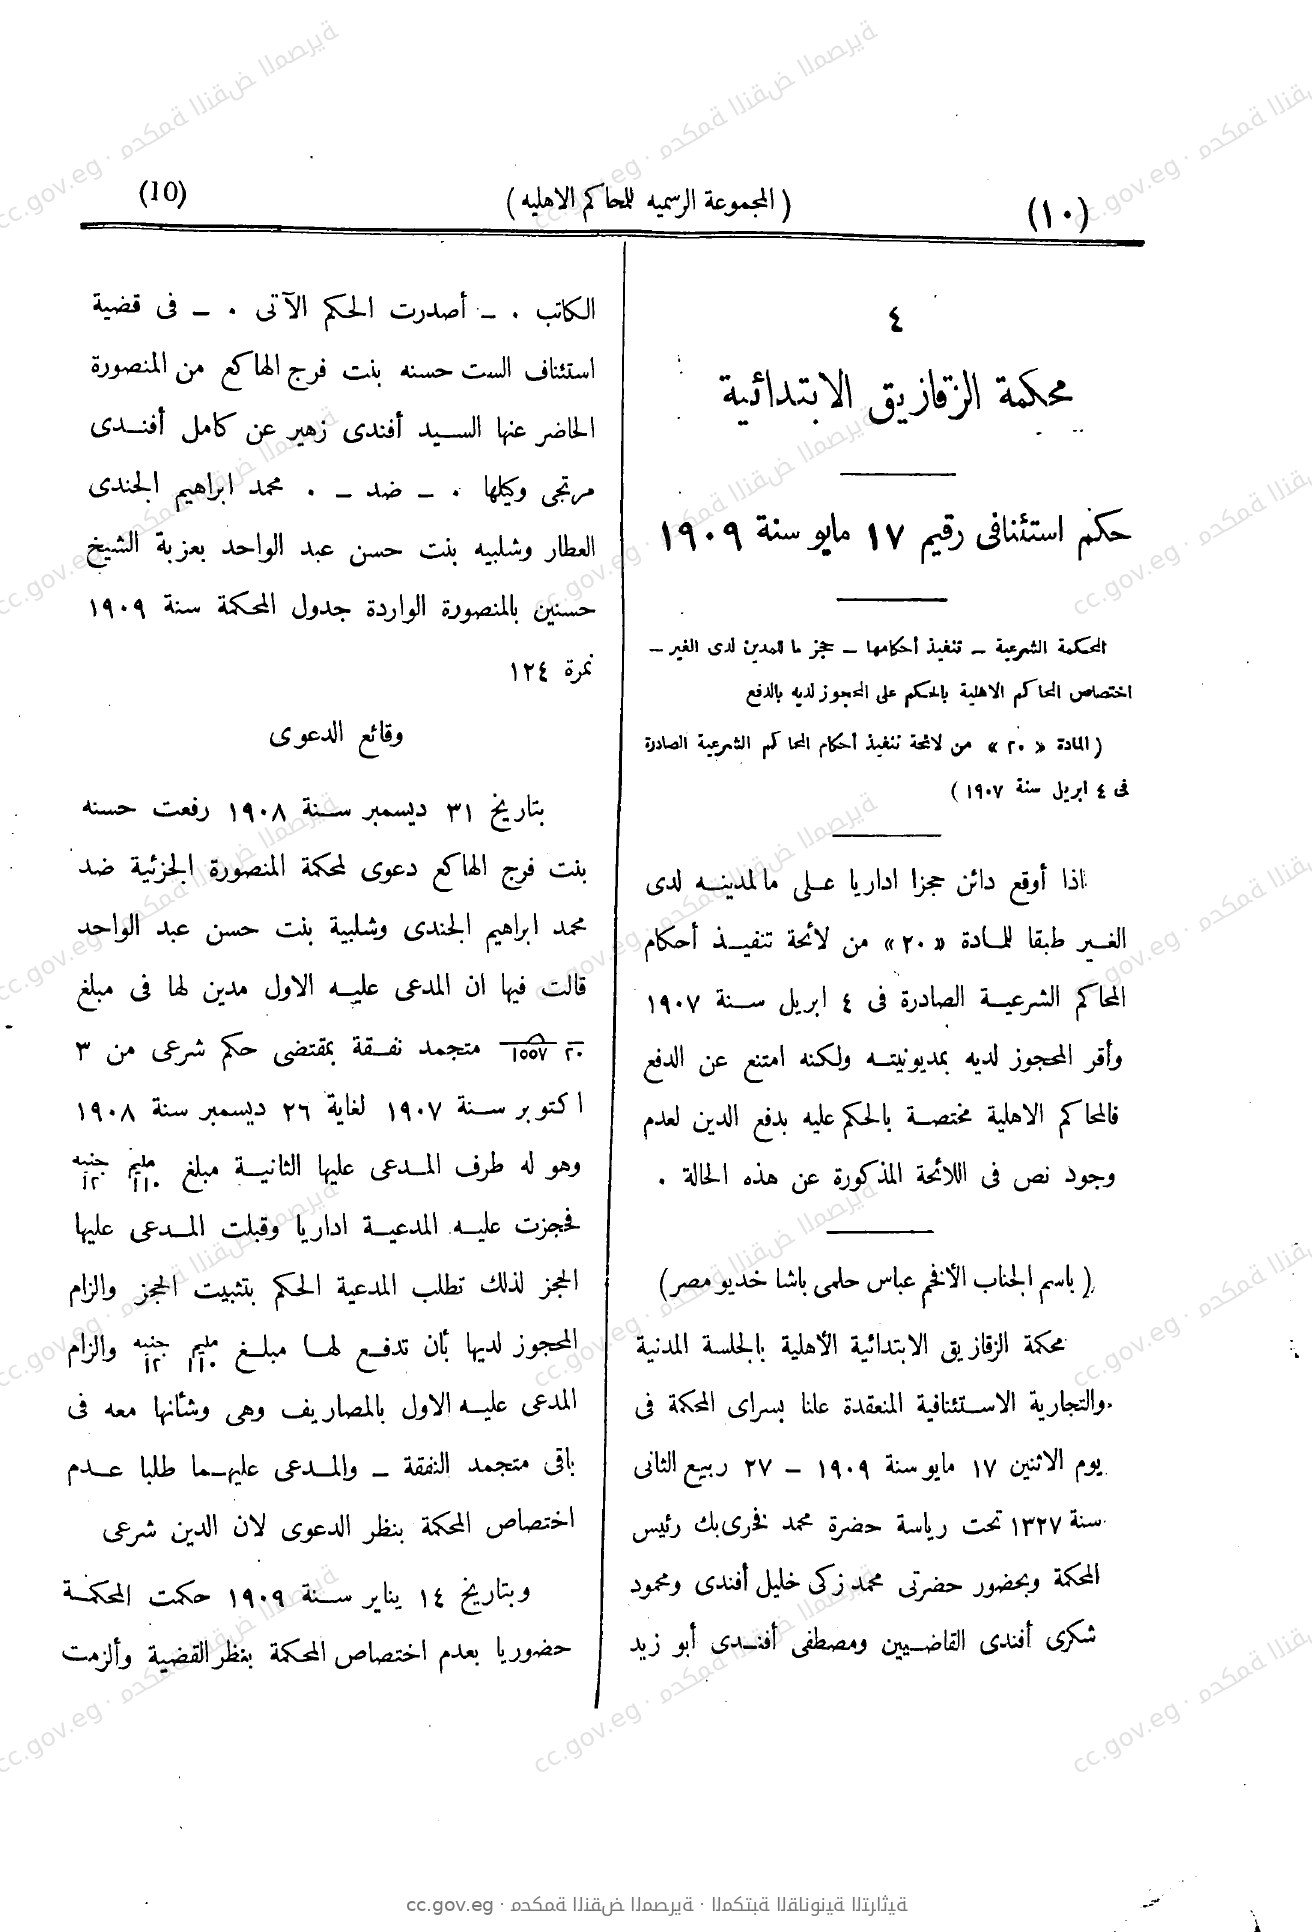 (١٠)
( المجموعة الرسميه للمحاكم الاهليه )
(10)
٤
محكمة الزقازيق الابتدائية
حكم استئنافى رقيم ١٧ مايو سنة ١٩٠٩
المحكمة الشرعية – تنفيذ أحكامها – حجز ما للمدين لدى الغير –
اختصاص المحاكم الاهلية بالحكم على المحجوز لديه بالدفع
( المادة « ٢٠ » من لائحة تنفيذ أحكام المحاكم الشرعية الصادرة
فى ٤ ابريل سنة ١٩٠٧ )
اذا أوقع دائن حجزا اداريا على مالمدينه لدى
الغير طبقا للمادة « ٢٠ » من لائحة تنفيذ أحكام
المحاكم الشرعية الصادرة فى ٤ ابريل سنة ١٩٠٧
وأقر المحجوز لديه بمديونيته ولكنه امتنع عن الدفع
فالمحاكم الاهلية مختصة بالحكم عليه بدفع الدين لعدم
وجود نص فى اللائحة المذكورة عن هذه الحالة .
( باسم الجناب الأفخم عباس حلمى باشا خديو مصر )
محكمة الزقازيق الابتدائية الأهلية بالجلسة المدنية
والتجارية الاستئنافية المنعقدة علنا بسراى المحكمة فى
يوم الاثنين ١٧ مايو سنة ١٩٠٩ – ٢٧ ربيع الثانى
سنة ١٣٢٧ تحت رياسة حضرة محمد فخرى بك رئيس
المحكمة وبحضور حضرتى محمد زكى خليل أفندى ومحمود
شكرى أفندى القاضيين ومصطفى أفندى أبو زيد
الكاتب . – أصدرت الحكم الآتى . – فى قضية
استئناف الست حسنه بنت فرج الهاكع من المنصورة
الحاضر عنها السيد أفندى زهير عن كامل أفندى
مرتجى وكيلها . – ضد – . محمد ابراهيم الجندى
العطار وشلبيه بنت حسن عبد الواحد بعزبة الشيخ
حسنين بالمنصورة الواردة جدول المحكمة سنة ١٩٠٩
نمرة ١٢٤
وقائع الدعوى
بتاريخ ٣١ ديسمبر سنة ١٩٠٨ رفعت حسنه
بنت فرج الهاكع دعوى لمحكمة المنصورة الجزئية ضد
محمد ابراهيم الجندى وشلبية بنت حسن عبد الواحد
قالت فيها ان المدعى عليه الاول مدين لها فى مبلغ
٢٠ ١٥٥٧ متجمد نفقة بمقتضى حكم شرعى من ٣
اكتوبر سنة ١٩٠٧ لغاية ٢٦ ديسمبر سنة ١٩٠٨
وهو له طرف المدعى عليها الثانية مبلغ مليم ١١٠ جنيه ١٢
فحجزت عليه المدعية اداريا وقبلت المدعى عليها
الحجز لذلك تطلب المدعية الحكم بتثبيت الحجز والزام
المحجوز لديها بأن تدفع لها مبلغ مليم ١١٠ جنيه ١٢ والزام
المدعى عليه الاول بالمصاريف وهى وشأنها معه فى
باقى متجمد النفقة – والمدعى عليهما طلبا عدم
اختصاص المحكمة بنظر الدعوى لان الدين شرعى
وبتاريخ ١٤ يناير سنة ١٩٠٩ حكمت المحكمة
حضوريا بعدم اختصاص المحكمة بنظر القضية وألزمت
cc.gov.eg · محكمة النقض المصرية · المكتبة القانونية التراثية